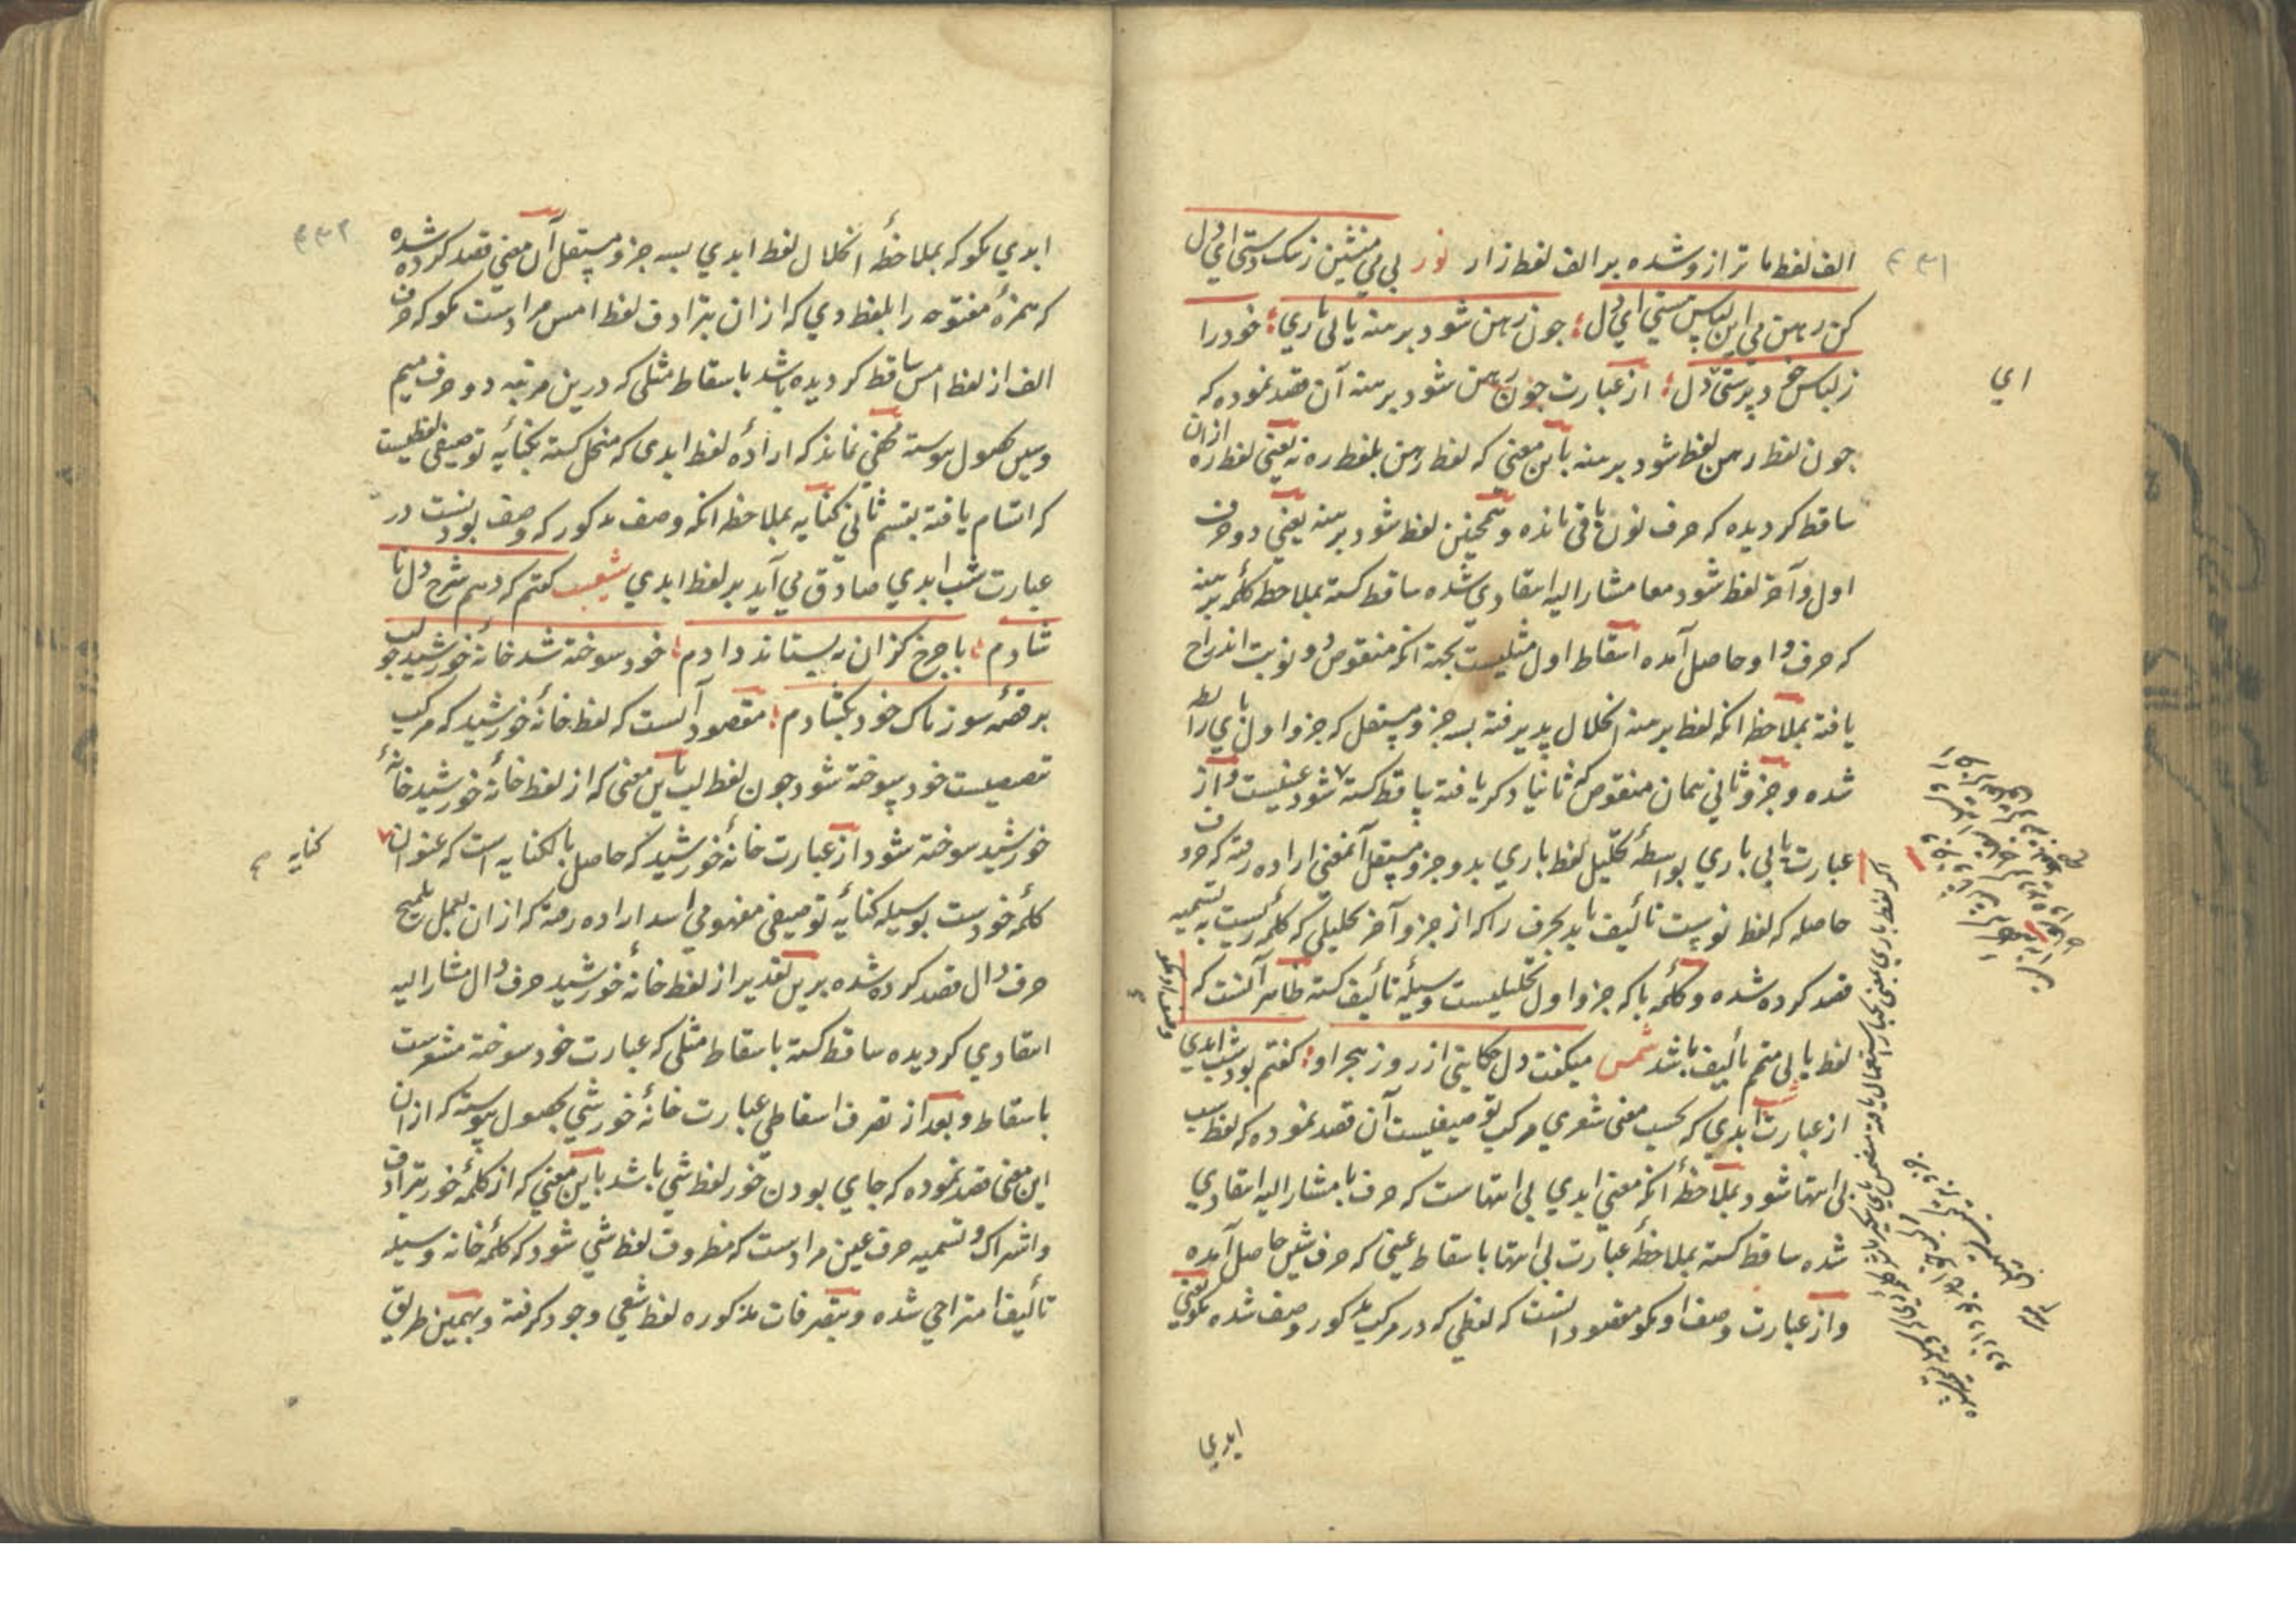 ۴۳۱
الف لفظ ما ترازو شده بر الف لفظ زار نور بی می منشین ز تنک دستی ای دل
کن رهن می این لباس هستی ای دل؛ چون رهن شود برهنه یا لی باری؛ خود را
ز لباس خود پرستی دل؛ از عبارت چون رهن شود برهنه آن قصد نموده که
چون لفظ رهن لفظ شود برهنه باین معنی که لفظ رهن بلفظ ره نه یعنی لفظ ره از ان
ساقط کردیده که حرف نون باقی مانده و همچنین لفظ شود برهنه یعنی دو حرف
اول و آخر لفظ شود معا مشار الیه انتقادی شده ساقط کشته بملاحظه کلمه برهنه
که حرف واو حاصل آمده اسقاط اول مثلیست بجهة انکه منقوص دو نوبت اندراج
یافته بملاحظه انکه لفظ برهنه انحلال پذیرفته بسه جزو مستقل که جزو اول بای رابطه
شده و جزو ثانی همان منقوص که ثانیا ذکر یافته ساقط کشته شود عینیست و از
عبارت یا بی باری بواسطه تحلیل لفظ باری بدو جزو مستقل آنمعنی اراده رفته که حرف
حاصله که لفظ نوست تألیف یابد بحرف را که از جزو آخر تحلیلی که کلمه ریست به تسمیه
قصد کرده شده و کلمه با که جزو اول تحلیلیست وسیله تألیف کشته ظاهر آنست که
لفظ یا بی متمم تألیف باشد شمس میکفت دل حکایتی از روز هجر او؛ کفتم بود شب ابدی وصف او مکو
از عبارت شب ابدی که بحسب معنی شعری مرکب توصیفیست آن قصد نموده که لفظ شب
بی انتها شود بملاحظه انکه معنی ابدی بی انتهاست که حرف با مشار الیه انتقادی
شده ساقط کشته بملاحظه عبارت بی انتها باسقاط عینی که حرف شین حاصل آمده
و از عبارت وصف او مکو مقصود انست که لفظی که در مرکب مذکور وصف شده مکو یعنی
ابدی
ای
۴۳۲
ابدی مکو که بملاحظه انحلال لفظ ابدی بسه جزو مستقل آن معنی قصد کرده شده
که همزه مفتوحه را بلفظ دی که از ان بترادف لفظ امس مرادست مکو که حرف
الف از لفظ امس ساقط کردیده باشد باسقاط مثلی که درین مرتبه دو حرف میم
و سین بحصول پیوسته مخفی نماند که اراده لفظ ابدی که منحل کشته بکنایه توصیفی لفظیست
که اتسام یافته بقسم ثانی کنایه بملاحظه انکه وصف مذکور که وصف بودنست در
عبارت شب ابدی صادق می آید بر لفظ ابدی شعیب کفتم که دهم شرح دل نا
شادم؛ با چرخ کزان نه بستاند دادم؛ خود سوخته شد خانه خورشید چو لب
بر قصه سوزناک خود بکشادم؛ مقصود آنست که لفظ خانه خورشید که مرکب
تنصیصیست خود سوخته شود چون لفظ لب باین معنی که از لفظ خانه خورشید خانه
خورشید سوخته شود از عبارت خانه خورشید که حاصل بالکنایه است که عنوان
کلمه خودست بوسیله کنایه توصیفی مفهومی اسد اراده رفته که از ان بعمل تلمیح
حرف دال قصد کرده شده برین تقدیر از لفظ خانه خورشید حرف دال مشار الیه
انتقادی کردیده ساقط کشته باسقاط مثلی که عبارت خود سوخته مشعرست
باسقاط و بعد از تصرف اسقاطی عبارت خانه خورشی بحصول پیوسته که از ان
این معنی قصد نموده که جای بودن خور لفظ شی باشد باین معنی که از کلمه خور بترادف
و اشتراک و تسمیه حرف عین مرادست که مظروف لفظ شی شود که کلمه خانه وسیله
تألیف امتزاجی شده و بتصرفات مذکوره لفظ شعی وجود کرفته و بهمین طریق
کنایه